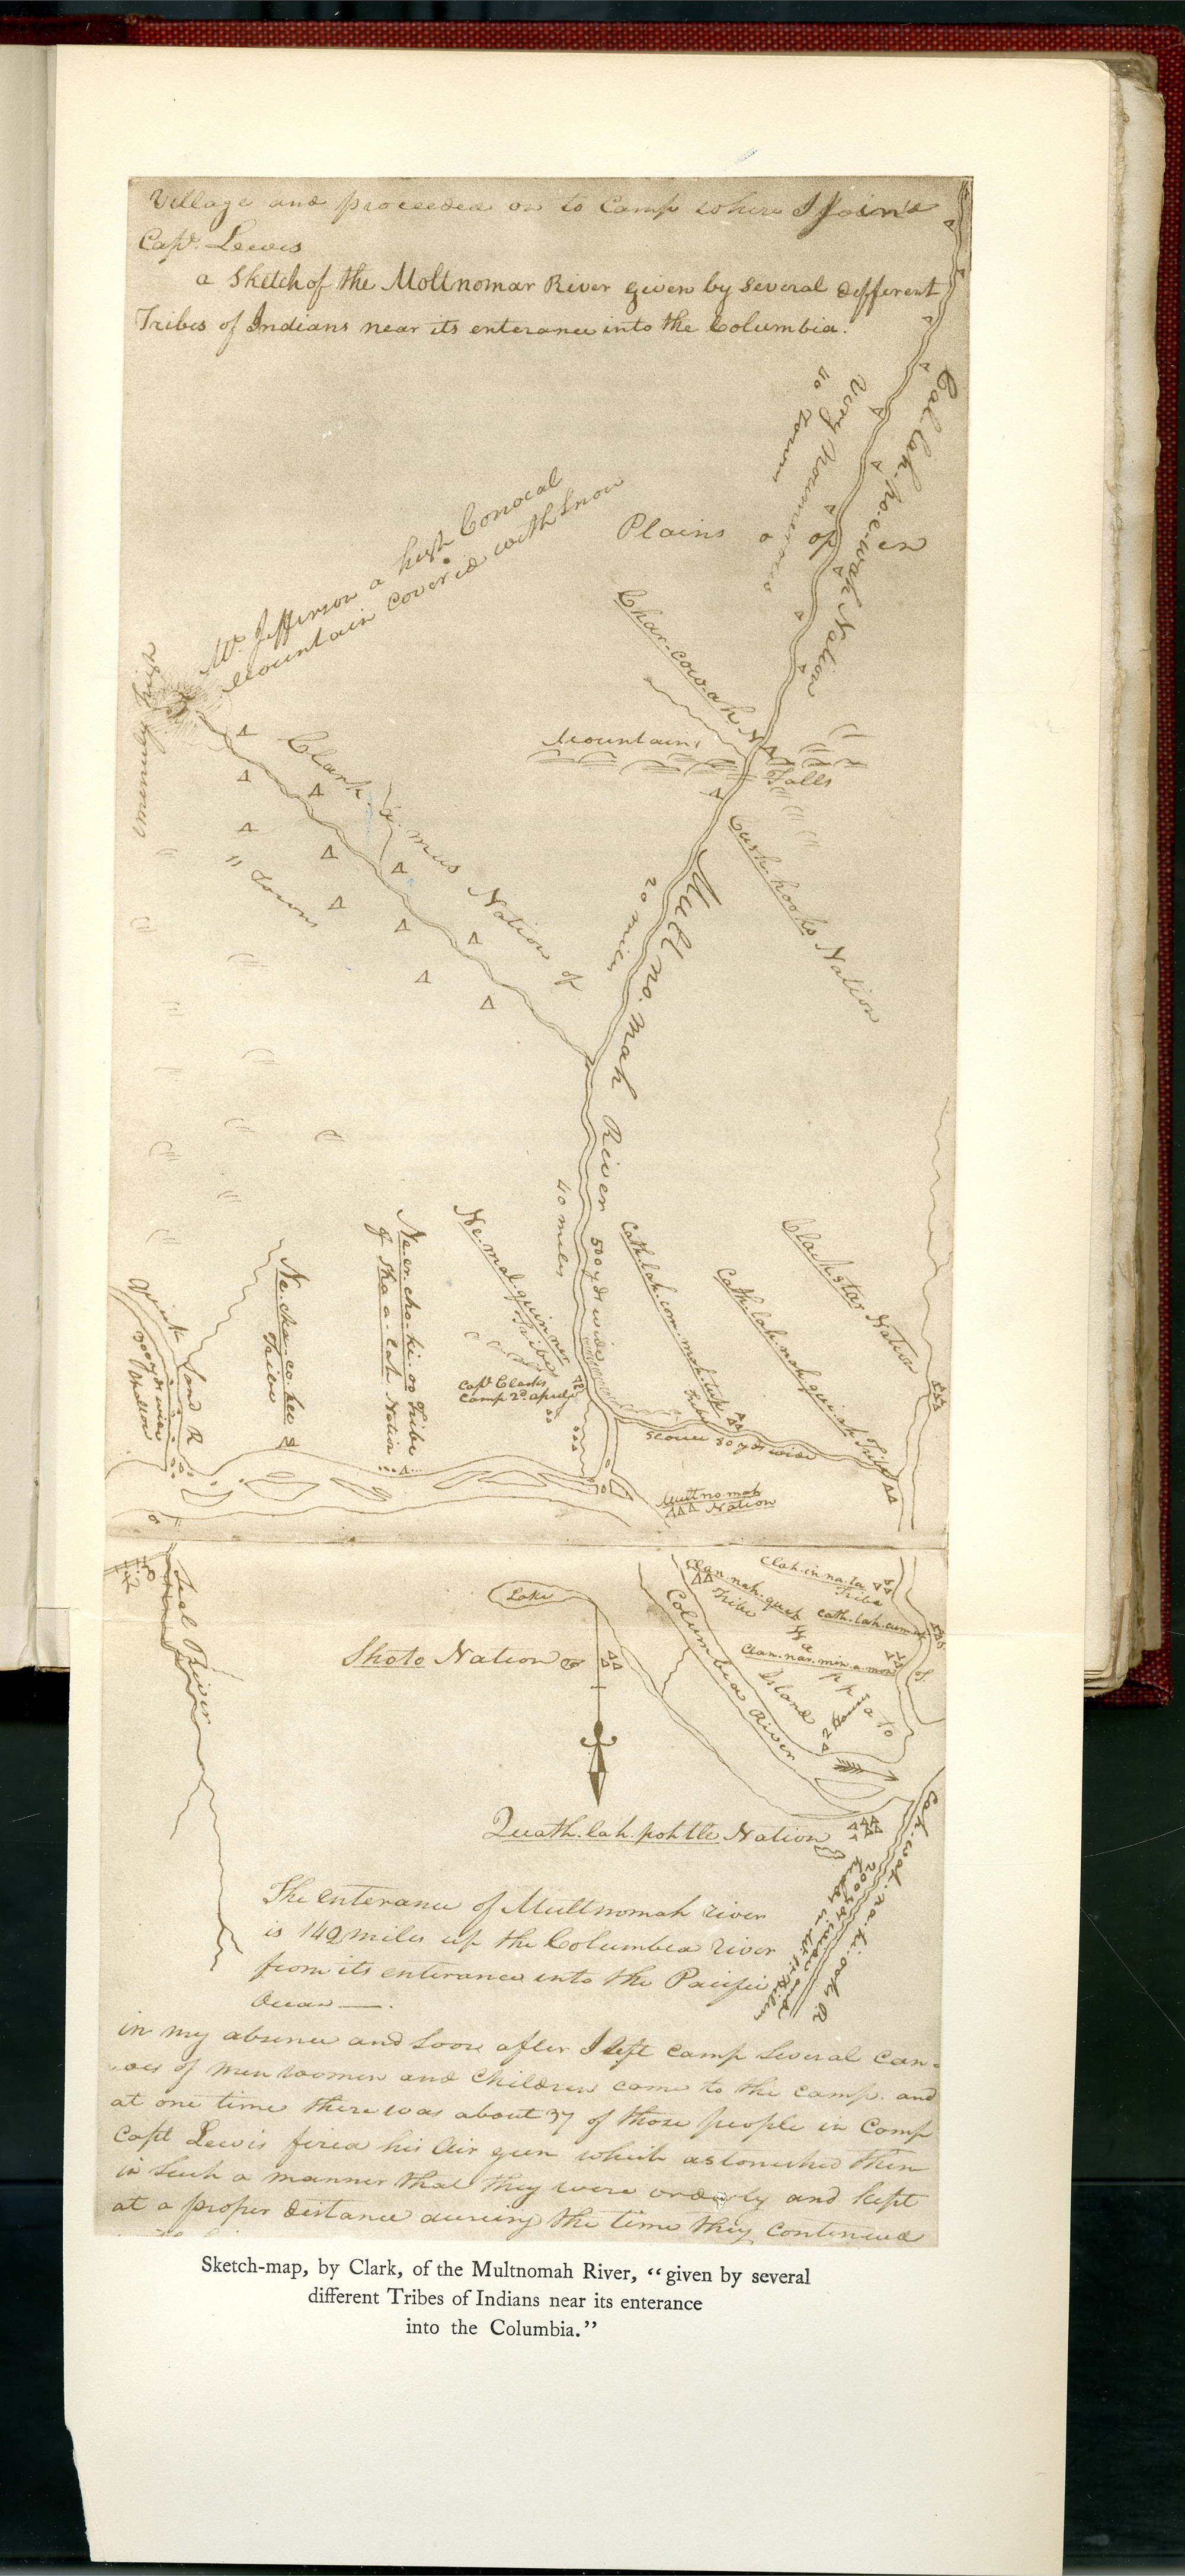 Village and proceeded on to Camp where I join'd
Capt. Lewis
a Sketch of the Moltnomar River given by several different
Tribes of Indians near its enterance into the Columbia.
Cal-lah-po-e-wah Nation
Very noumerous
40 Towns
Plains o op en
Mt. Jefferson a high Conocal
Mountain covered with Snow
Char-cow-ah N
Mountains
Falls
Clark a mus Nation of
11 Towns
Cush-hooks Nation
20 miles
Mult no. mah River
40 miles
500 yds wide
Ne-mal-quin-ner
Tribe
Capt Clarks
Camp 2d april
Ne-er-cho-ki-oo Tribe
of Sha-a-lah Nation
Ne-cha-co-kee
Tribe
Quick Sand R
300 yds wide
Shallow
Cath-lah-com-mah-tup
Tribe
Cath-lah-nah-qui-ah Tribe
Clackstar Nation
Slour 30 yds wide
Mult no mah
Nation
Clan-nah-quah
Tribe
Clah-in-na-ta
Tribe
Cath-lah-cum-up
Clan-nar-min-a-mon
Wa pp a to
Island
2 houses
Columbia River
Seal River
Lake
Shoto Nation
Quath-lah-poh-tle Nation
Cah-wah-na-hi-ooks R
200 yds wide and
The enterance of Multnomah river
is 142 miles up the Columbia river
from its enterance into the Pacific
Ocean —.
in my absence and soon after I left camp Several Can-
-oes of men women and Children came to the camp. and
at one time there was about 37 of those people in Camp
Capt Lewis fired his Air gun which astonished them
in Such a manner that they were orderly and kept
at a proper distance dureing the time they continued
Sketch-map, by Clark, of the Multnomah River, "given by several
different Tribes of Indians near its enterance
into the Columbia."